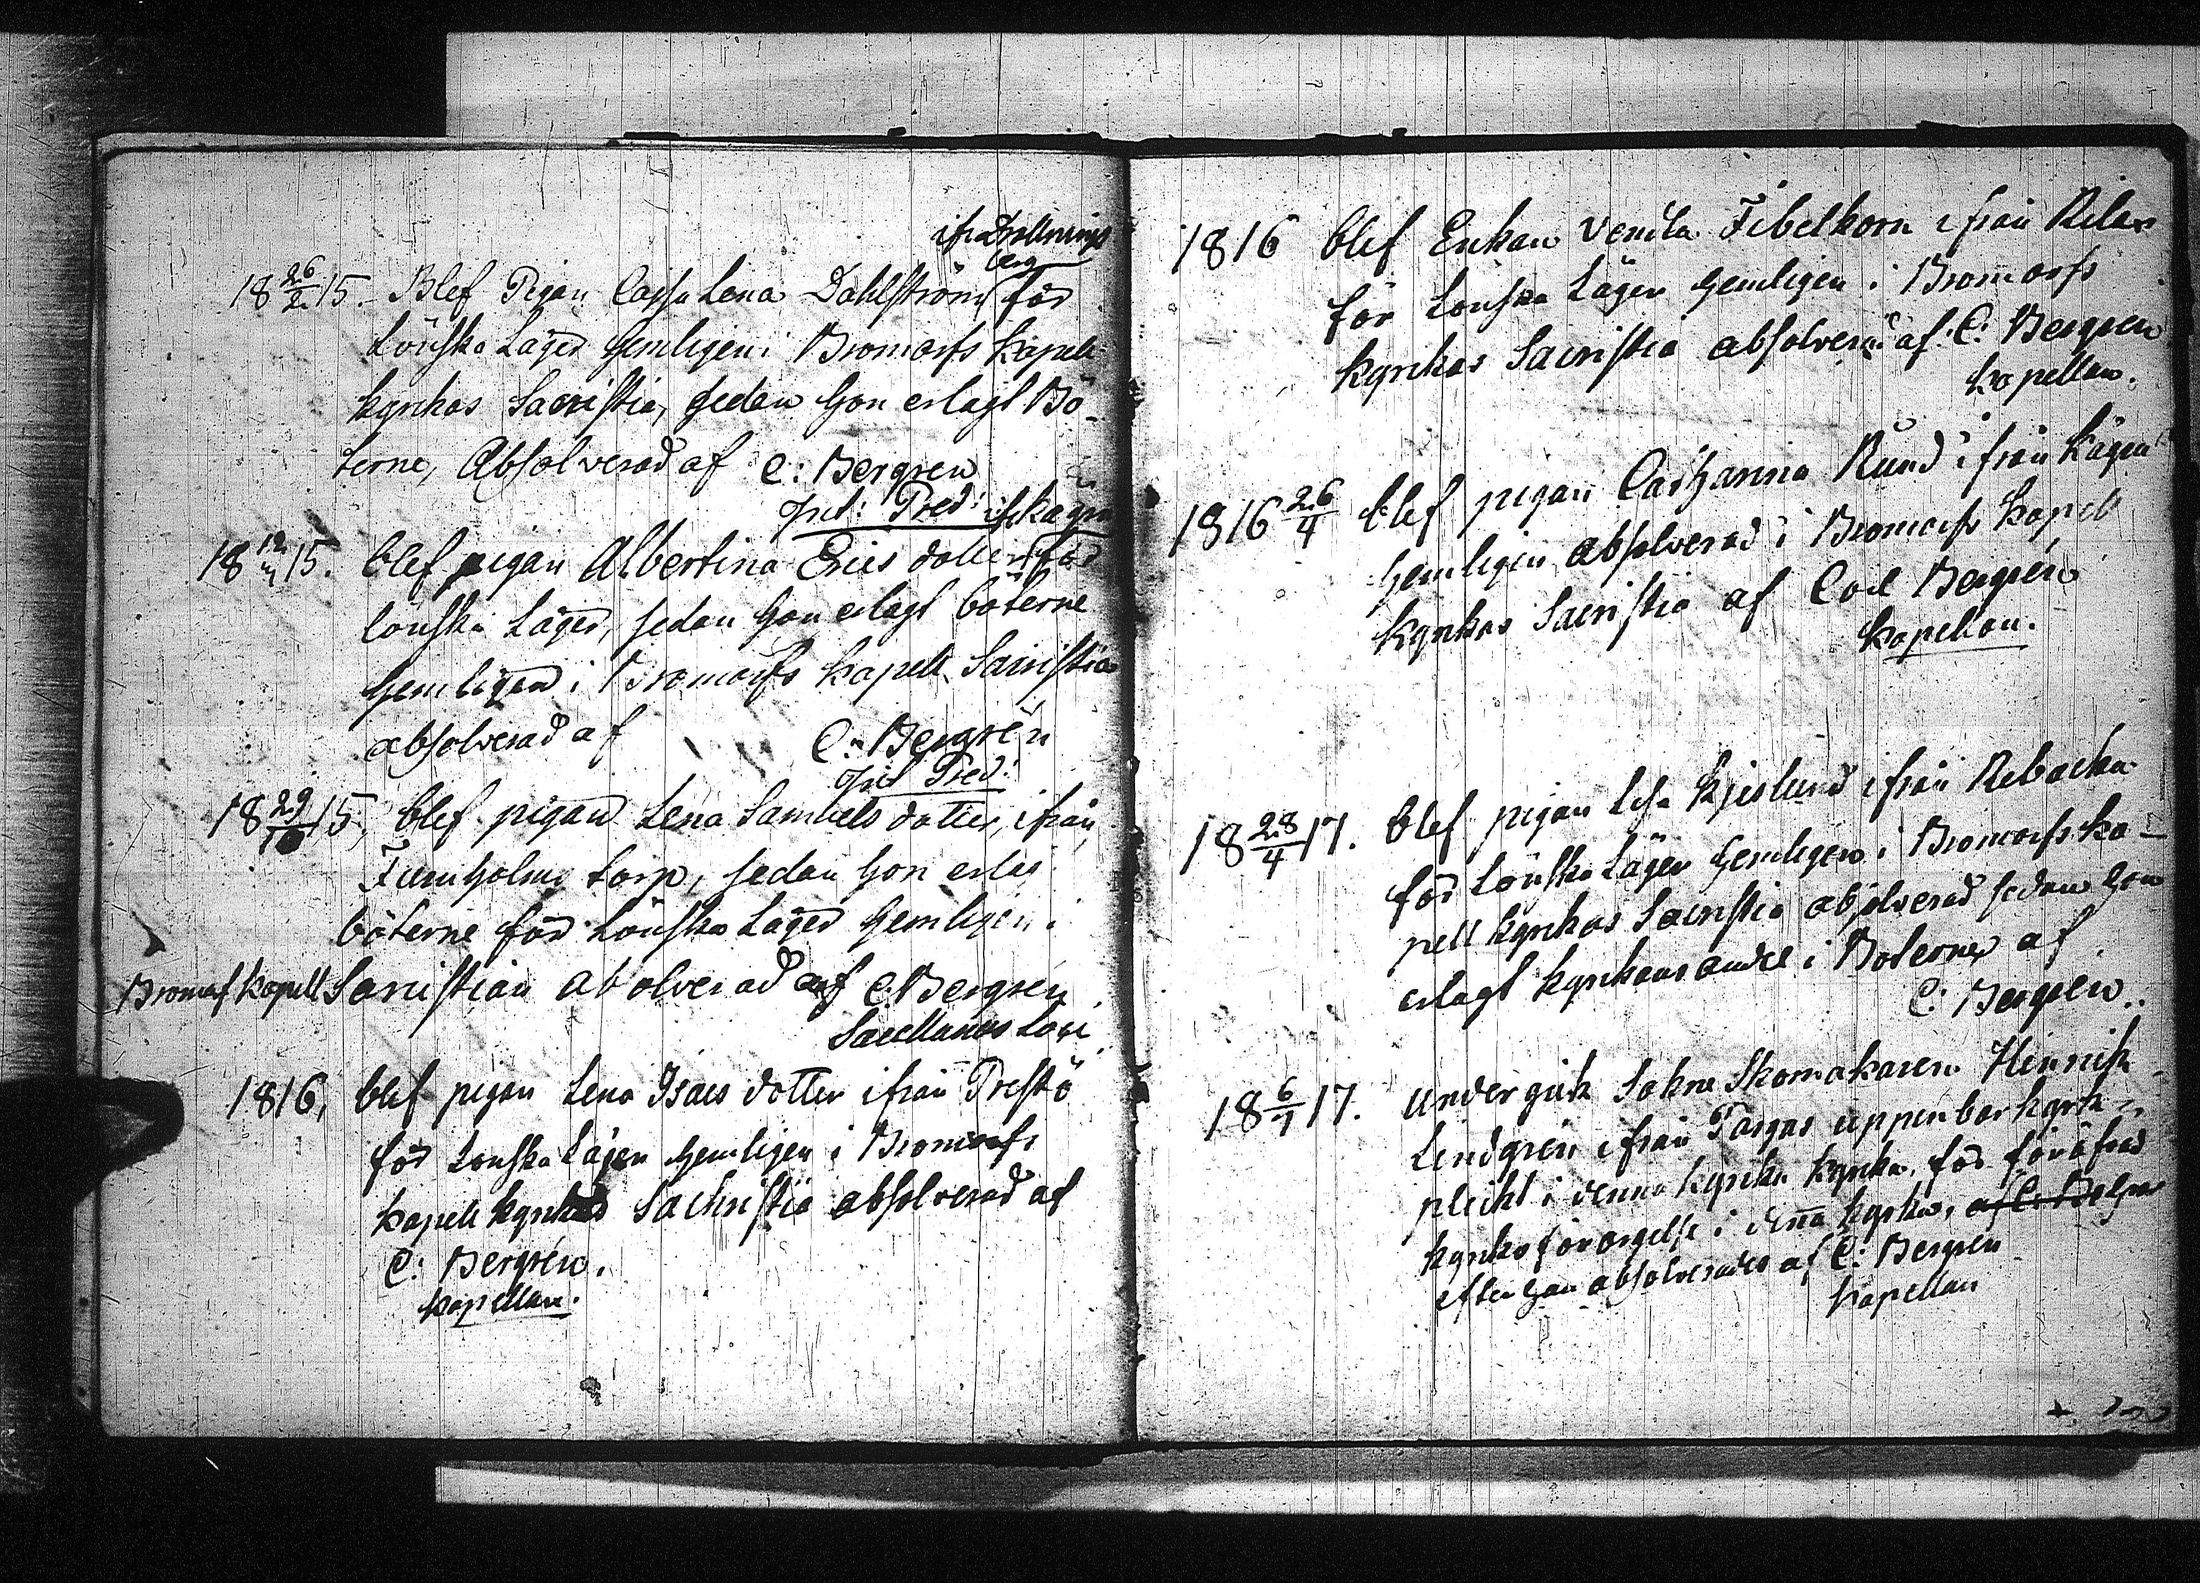 ifrån Drottnings
berg
18 26/2 15. Blef Pigan Cajsa Lena Dahlström för
Lönska Läger hemligen i Bromarfs Kapell
kyrkas Sacristia, sedan hon erlagt Bö-
terne, Absolverad af C: Bergren
Ord: Pred:
if. Kagra
18 15. blef pigan Albertina Erics dotter för
lönska Läger, sedan hon erlagt böterne
hemligen i Bromarfs Kapell Sacristia
absolverad af C: Bergrén
Pred:
18 29/10 15, blef pigan Lena Samuels dotter, ifrån
torp, sedan hon erlagt
böterne för Lönska Läger hemligen i
Bromarf Kapell Sacristian abolverad af C. Bergren
Sacellanus Loci
1816, blef pigan Lena Isacs dotter ifrån Prestö
för Lönska Läger hemligen i Bromarfs
Kapell kyrkas Sachristia absolverad af
C: Bergrén.
Kapellan.
1816 blef Enkan Vendla Fibelkorn ifrån Rilax
för Lönska Läger hemligen i Bromarfs
kyrkas Sacristia absolverad af C: Bergren
Kapellan.
1816 26/4 blef pigan Cathanna Rund ifrån Kagra
hemligen absolverad i Bromarfs Kapell
Kyrkas Sacristia af Carl Bergrén
Kapellan.
18 28/4 17. blef pigan Lisa Kjeslund ifrån Rebacka
för Lönska Läger hemligen i Bromarfs Ka-
pell kyrkas Sacristia absolverad sedan hon
erlagt kyrkans andel i Böterne af
C: Bergrén.
18 6/7 17. undergick Sokne Skomakaren Hinrich
Lindgrén ifrån Pargas uppenbar kyrk-
plickt i denna kyrka kyrka, för föröfvad
kyrko förargelse i denna kyrka,
efter han absolverades af C: Bergren
Kapellan